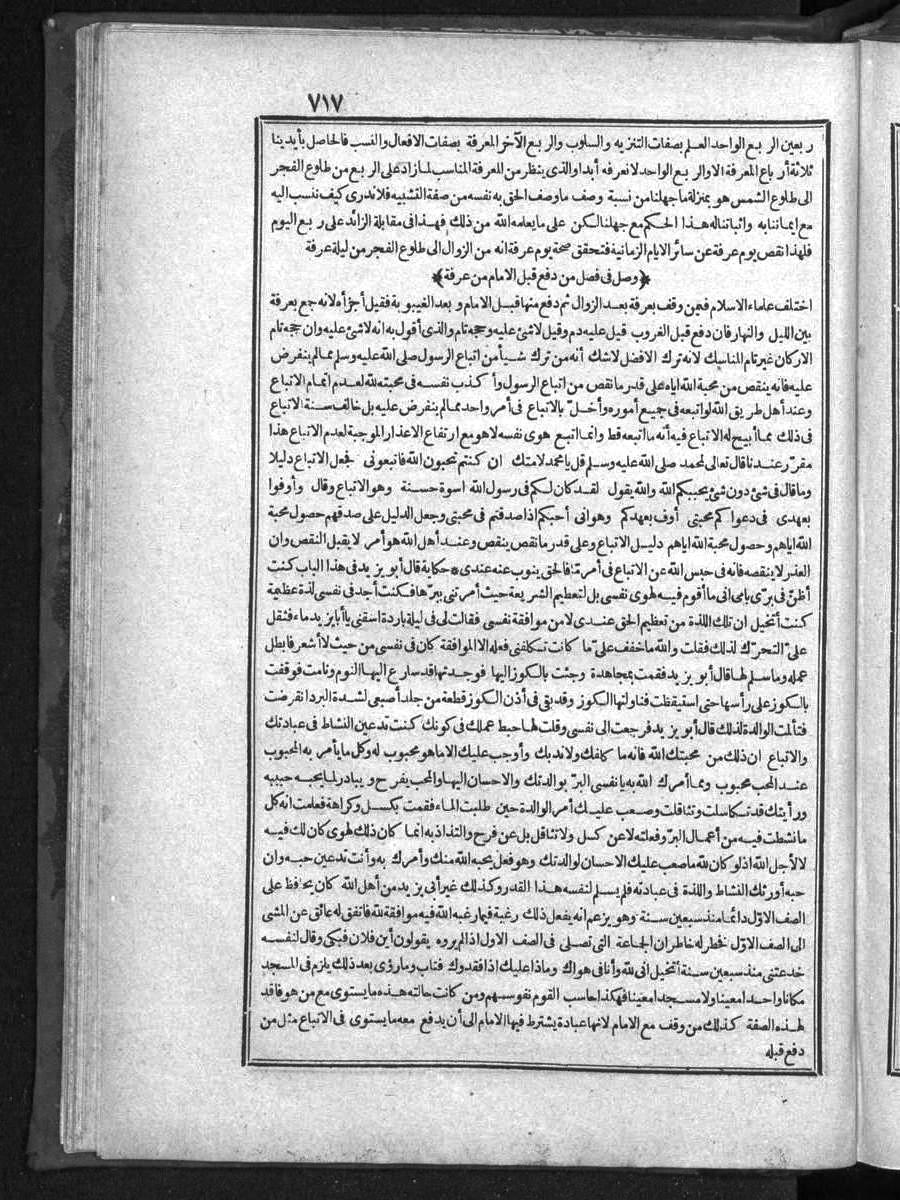 ٧١٧
ربعين الربع الواحد العلم بصفات التنزيه والسلوب والربع الآخر المعرفة بصفات الافعال والنسب فالحاصل بأيدينا
ثلاثة أرباع المعرفة الاوالربع الواحد لا نعرفه أبدا والذى ينظر من المعرفة المناسب لما زاد على الربع من طلوع الفجر
الى طلوع الشمس هو بمنزلة ما جهلنا من نسبة وصف ما وصف الحق به نفسه من صفة التشبيه فلا ندرى كيف ننسب اليه
مع ايماننا به واثباتنا له هذا الحكم مع جهلنا لكن على ما يعلمه الله من ذلك فهذا فى مقابلة الزائد على ربع اليوم
فلهذا نقص يوم عرفة عن سائر الايام الزمانية فتحقق صحة يوم عرفة انه من الزوال الى طلوع الفجر من ليلة عرفة
﴿وصل فى فصل من دفع قبل الامام من عرفة﴾
اختلف علماء الاسلام فيمن وقف بعرفة بعد الزوال ثم دفع منها قبل الامام وبعد الغيبوبة فقيل أجزأه لانه جمع بعرفة
بين الليل والنهار فان دفع قبل الغروب قيل عليه دم وقيل لا شئ عليه وحجه تام والذى أقول به انه لا شئ عليه وان حجه تام
الاركان غير تام المناسك لانه ترك الافضل لا شك أنه من ترك شيأ من اتباع الرسول صلى الله عليه وسلم مما لم ينفرض
عليه فانه ينقص من محبة الله اياه على قدر ما نقص من اتباع الرسول وأكذب نفسه فى محبته لله لعدم اتمام الاتباع
وعند أهل طريق الله لو اتبعه فى جميع أموره وأخلّ بالاتباع فى أمر واحد مما لم ينفرض عليه بل خالف سنة الاتباع
فى ذلك مما أبيح له الاتباع فيه أنه ما اتبعه قط وانما اتبع هوى نفسه لا هو مع ارتفاع الاعذار الموجبة لعدم الاتباع هذا
مقرّر عندنا قال تعالى لمحمد صلى الله عليه وسلم قل يا محمد لامتك ان كنتم تحبون الله فاتبعونى فجعل الاتباع دليلا
وما قال فى شئ دون شئ يحببكم الله والله يقول لقد كان لكم فى رسول الله اسوة حسنة وهو الاتباع وقال وأوفوا
بعهدى فى دعواكم محبتى أوف بعهدكم وهو انى أحبكم اذا صدقتم فى محبتى وجعل الدليل على صدقهم حصول محبة
الله اياهم وحصول محبة الله اياهم دليل الاتباع وعلى قدر ما نقص ينقص وعند أهل الله هو أمر لا يقبل النقص وان
العذر لا ينقصه فانه فى حبس الله عن الاتباع فى أمر مّا فالحق ينوب عنه عندى * حكاية قال أبو يزيد فى هذا الباب كنت
أظنّ فى برّى بامى انى ما أقوم فيه لهوى نفسى بل لتعظيم الشريعة حيث أمرتنى ببرّها فكنت أجد فى نفسى لذة عظيمة
كنت أتخيل ان تلك اللذة من تعظيم الحق عندى لا من موافقة نفسى فقالت لى فى ليلة باردة اسقنى يا أبا يزيد ماء فثقل
علىّ التحرّك لذلك فقلت والله ما خفف علىّ ما كانت تكلفنى فعله الا لموافقة كان فى نفسى من حيث لا أشعر فابطل
عمله وما سلم لها قال أبو يزيد فقمت بمجاهدة وجئت بالكوز اليها فوجدتها قد سارع اليها النوم ونامت فوقفت
بالكوز على رأسها حتى استيقظت فناولتها الكوز وقد بقى فى أذن الكوز قطعة من جلد أصبعى لشدة البرد انقرضت
فتألمت الوالدة لذلك قال أبو يزيد فرجعت الى نفسى وقلت لها حبط عملك فى كونك كنت تدعين النشاط فى عبادتك
والاتباع ان ذلك من محبتك الله فانه ما كلفك ولا ندبك وأوجب عليك الا ما هو محبوب له وكل ما يأمر به المحبوب
عند المحب محبوب ومما أمرك الله به يا نفسى البرّ بوالدتك والاحسان اليها والمحب يفرح ويبادر لما يحبه حبيبه
ورأيتك قد تكاسلت وتثاقلت وصعب عليك أمر الوالدة حين طلبت الماء فقمت بكسل وكراهة فعلمت انه كل
ما نشطت فيه من أعمال البرّ وفعلته لا عن كسل ولا تثاقل بل عن فرح والتذاذ به انما كان ذلك لهوى كان لك فيه
لا لأجل الله اذ لو كان لله ما صعب عليك الاحسان لوالدتك وهو فعل يحبه الله منك وأمرك به وأنت تدعين حبه وان
حبه أورثك النشاط واللذة فى عبادته فلم يسلم لنفسه هذا القدر وكذلك غير أبى يزيد من أهل الله كان يحافظ على
الصف الاوّل دائما منذ سبعين سنة وهو يزعم انه يفعل ذلك رغبة فيما رغبه الله فيه موافقة لله فاتفق له عائق عن المشى
الى الصف الاوّل فخطر له خاطر ان الجماعة التى تصلى فى الصف الاول اذا لم يروه يقولون أين فلان فبكى وقال لنفسه
خدعتنى منذ سبعين سنة أتخيل انى لله وأنا فى هواك وماذا عليك اذا فقدوك فتاب وما رؤى بعد ذلك يلزم فى المسجد
مكانا واحدا معينا ولا مسجدا معينا فهكذا حاسب القوم نفوسهم ومن كانت حالته هذه ما يستوى مع من هو فاقد
لهذه الصفة كذلك من وقف مع الامام لانها عبادة يشترط فيها الامام الى أن يدفع معه ما يستوى فى الاتباع مثل من
دفع قبله